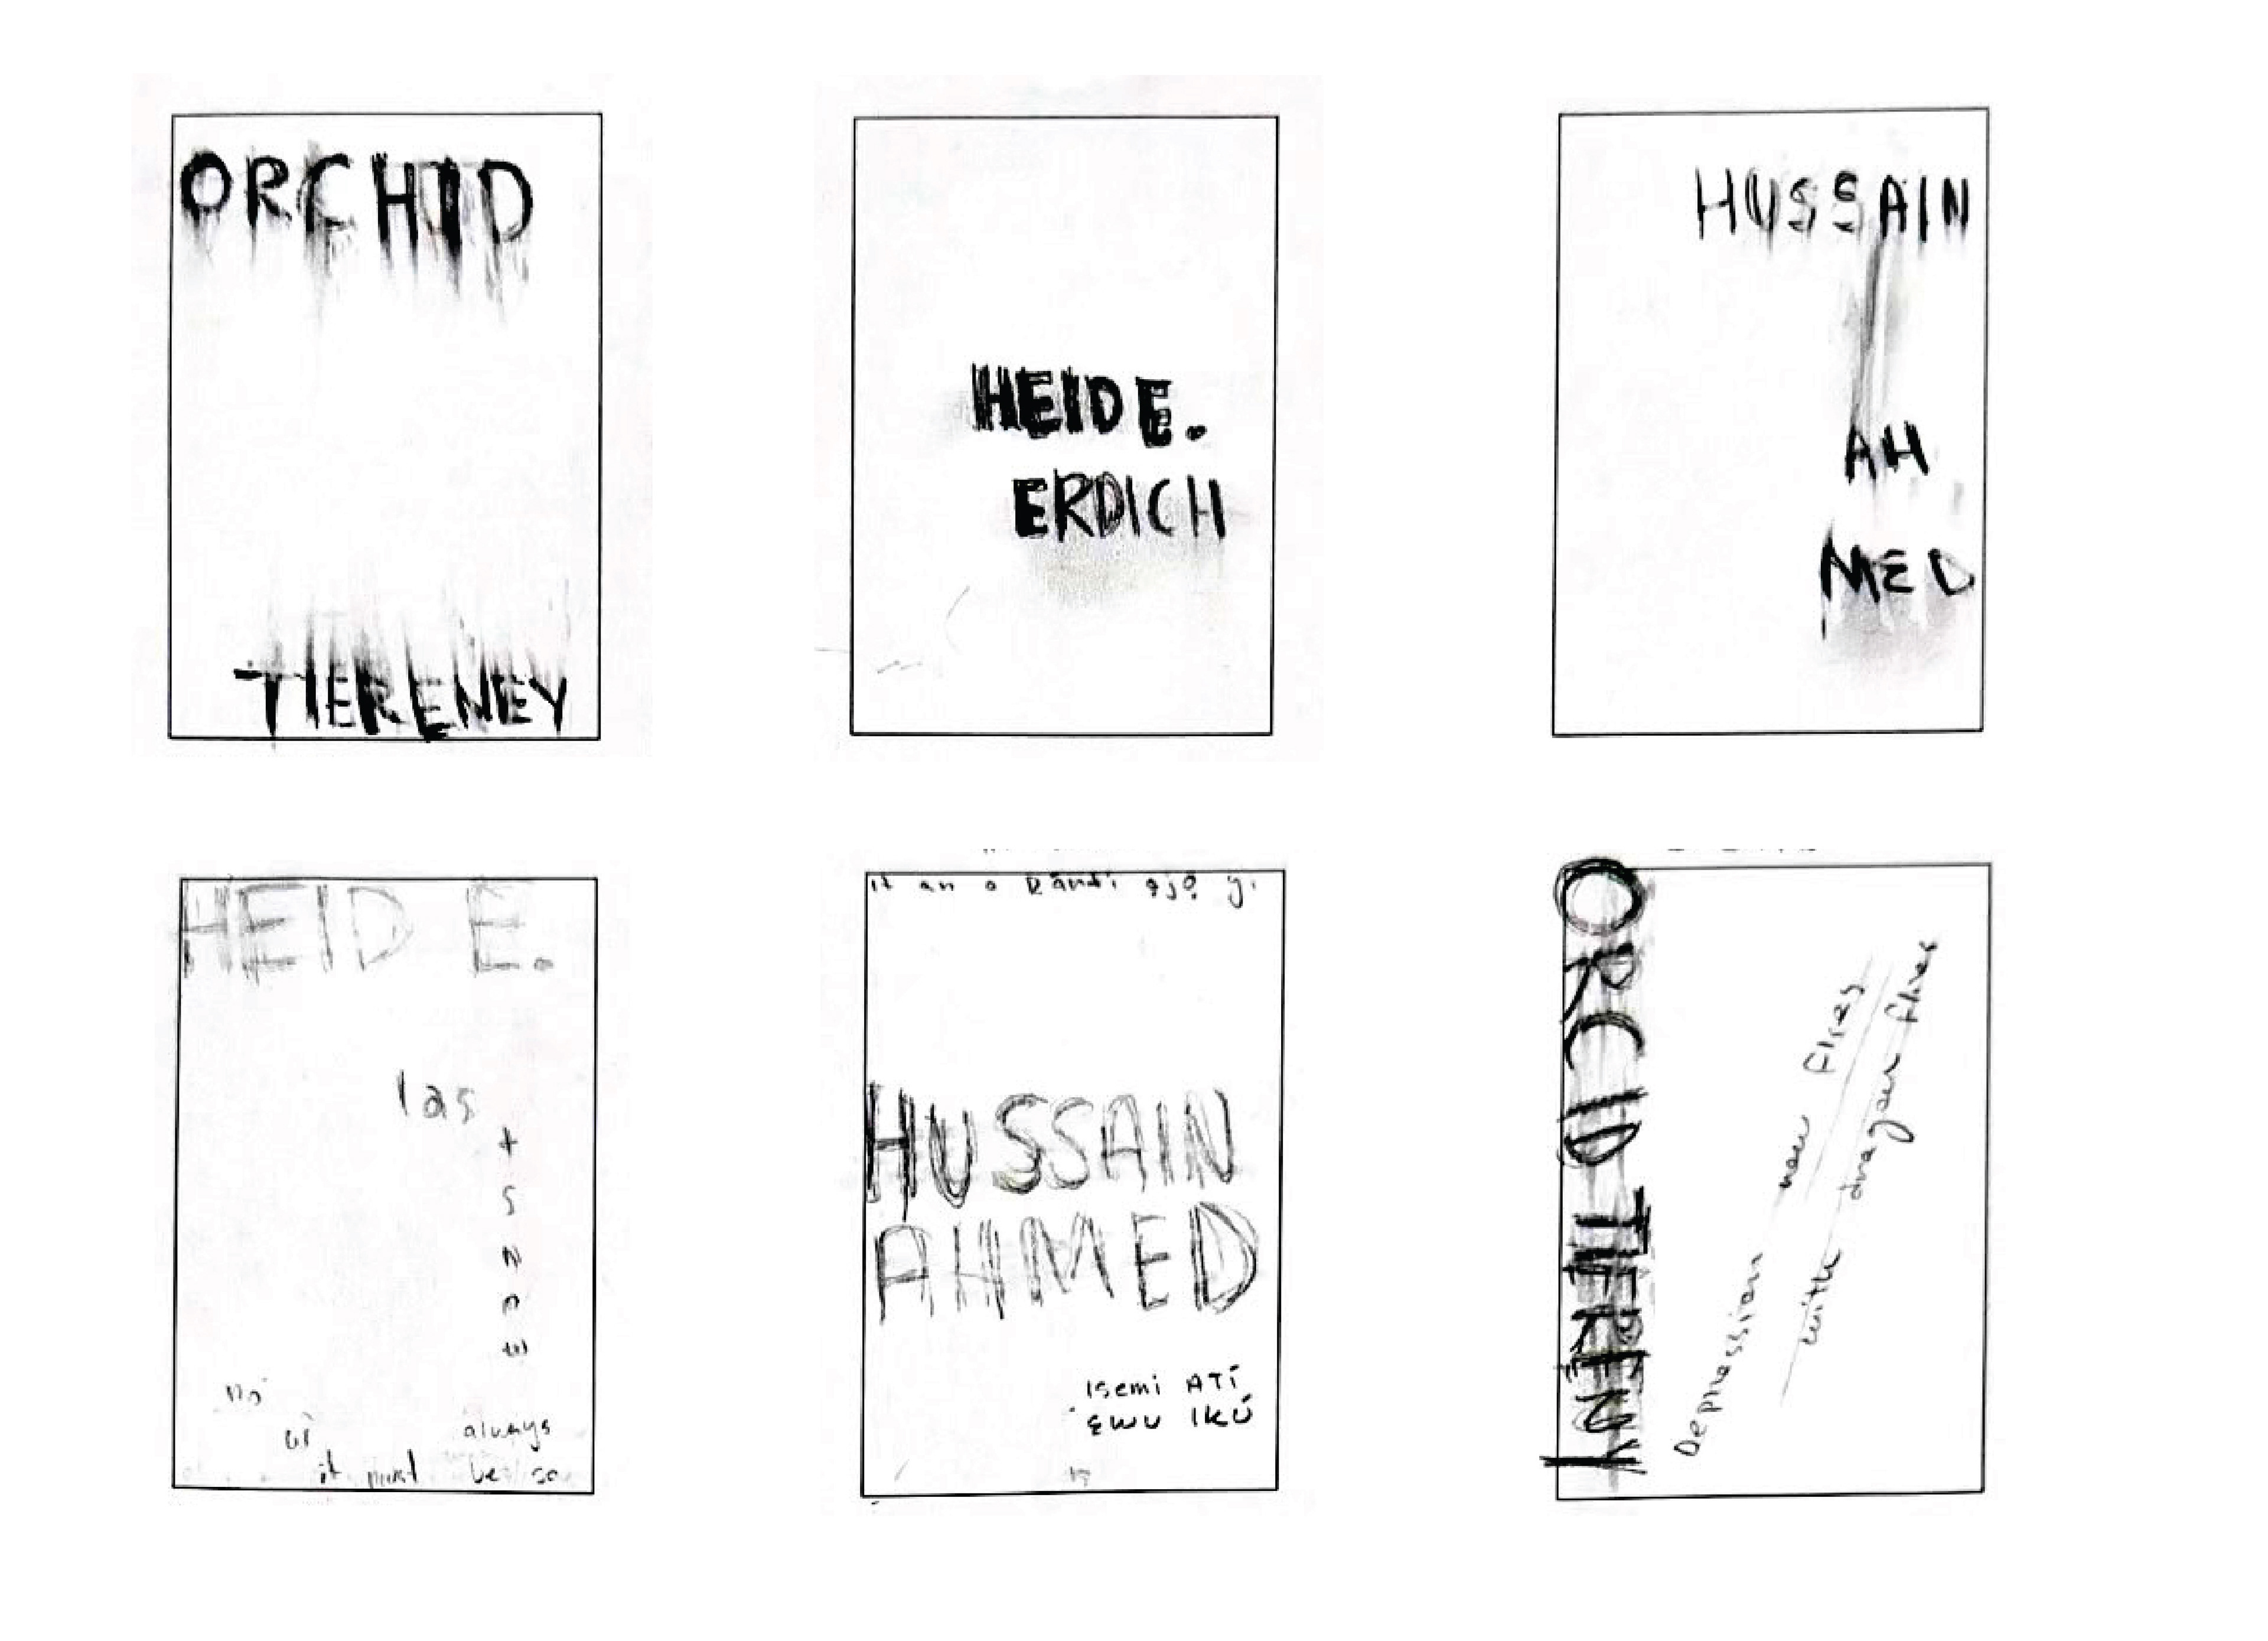 ORCHID
TIERENEY
HEIDE.
ERDICH
HUSSAIN
AH
MED
HEID E.
las
t
s
n
o
w
always
it must be so
HUSSAIN
AHMED
Isemi ATÍ
ẸWU IKÚ
ORCID TIERENY
Depression now flies
with dragon flies